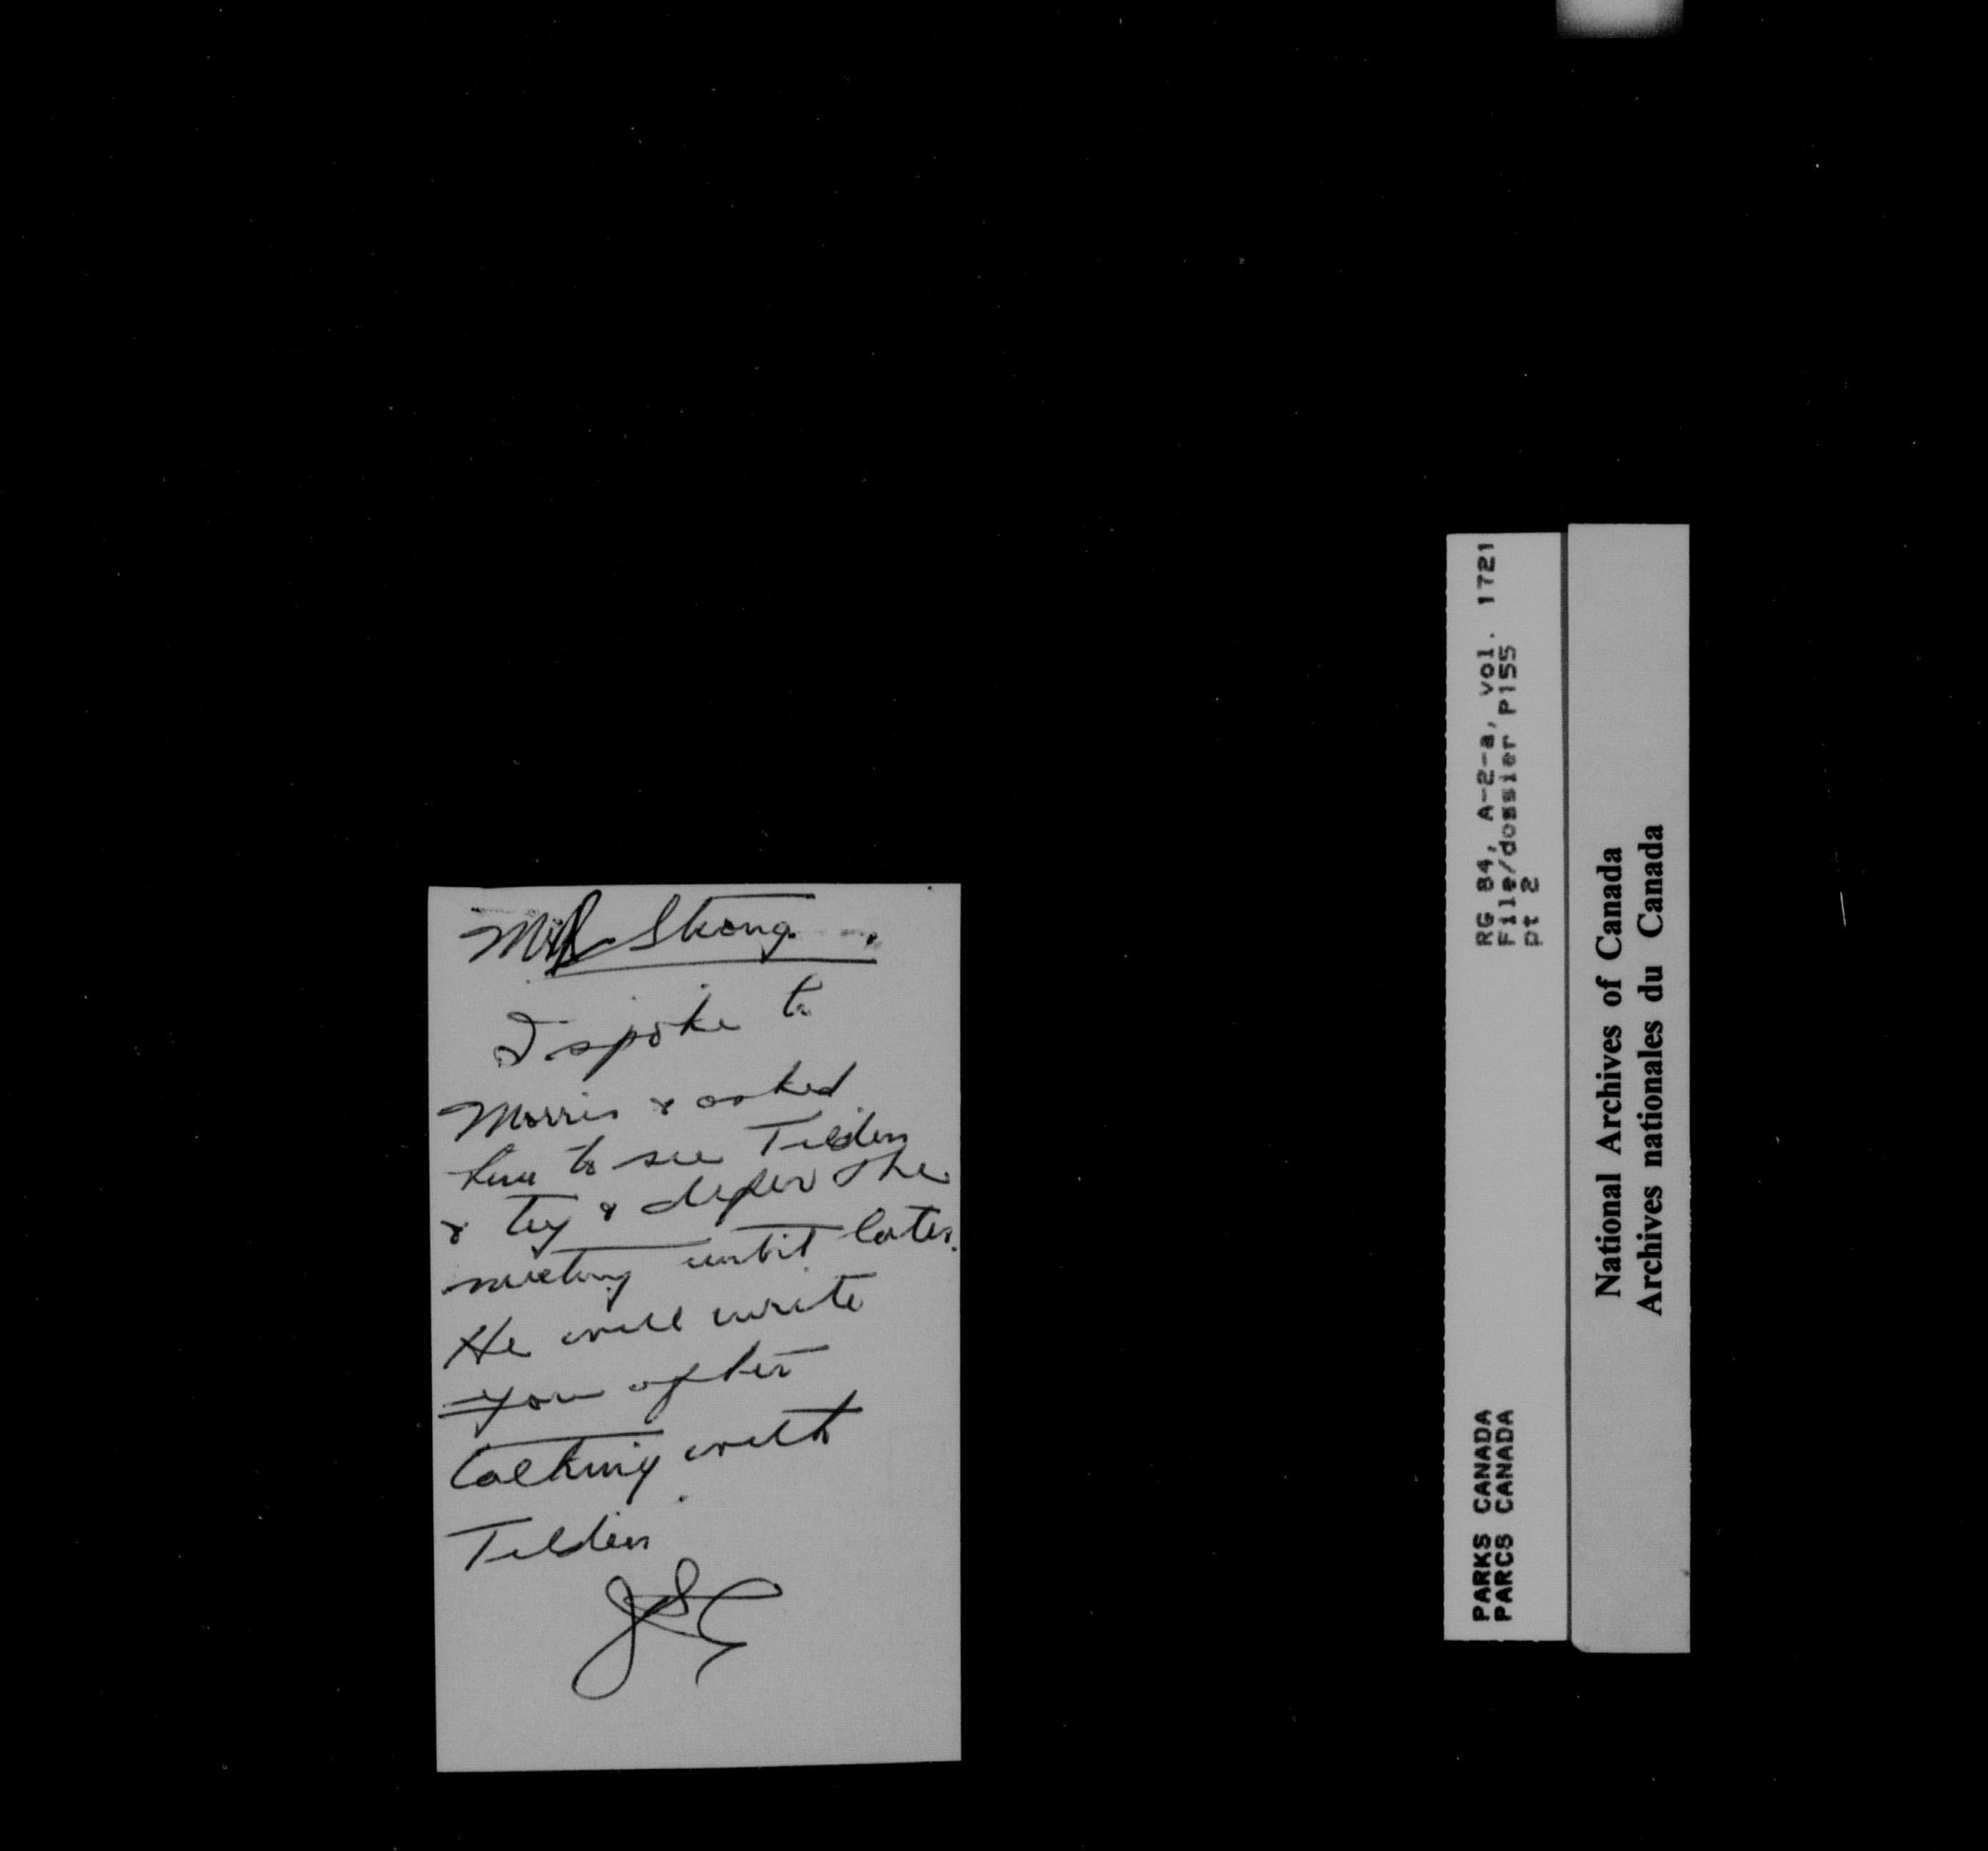 Mr Strong.
I spoke to
Morris & asked
him to see Tilden
& try & defer the
meeting until later.
He will write
you after
talking with
Tilden
RG 84, A-2-a, vol. 1721
File/dossier P155
pt 2
PARKS CANADA
PARCS CANADA
National Archives of Canada
Archives nationales du Canada